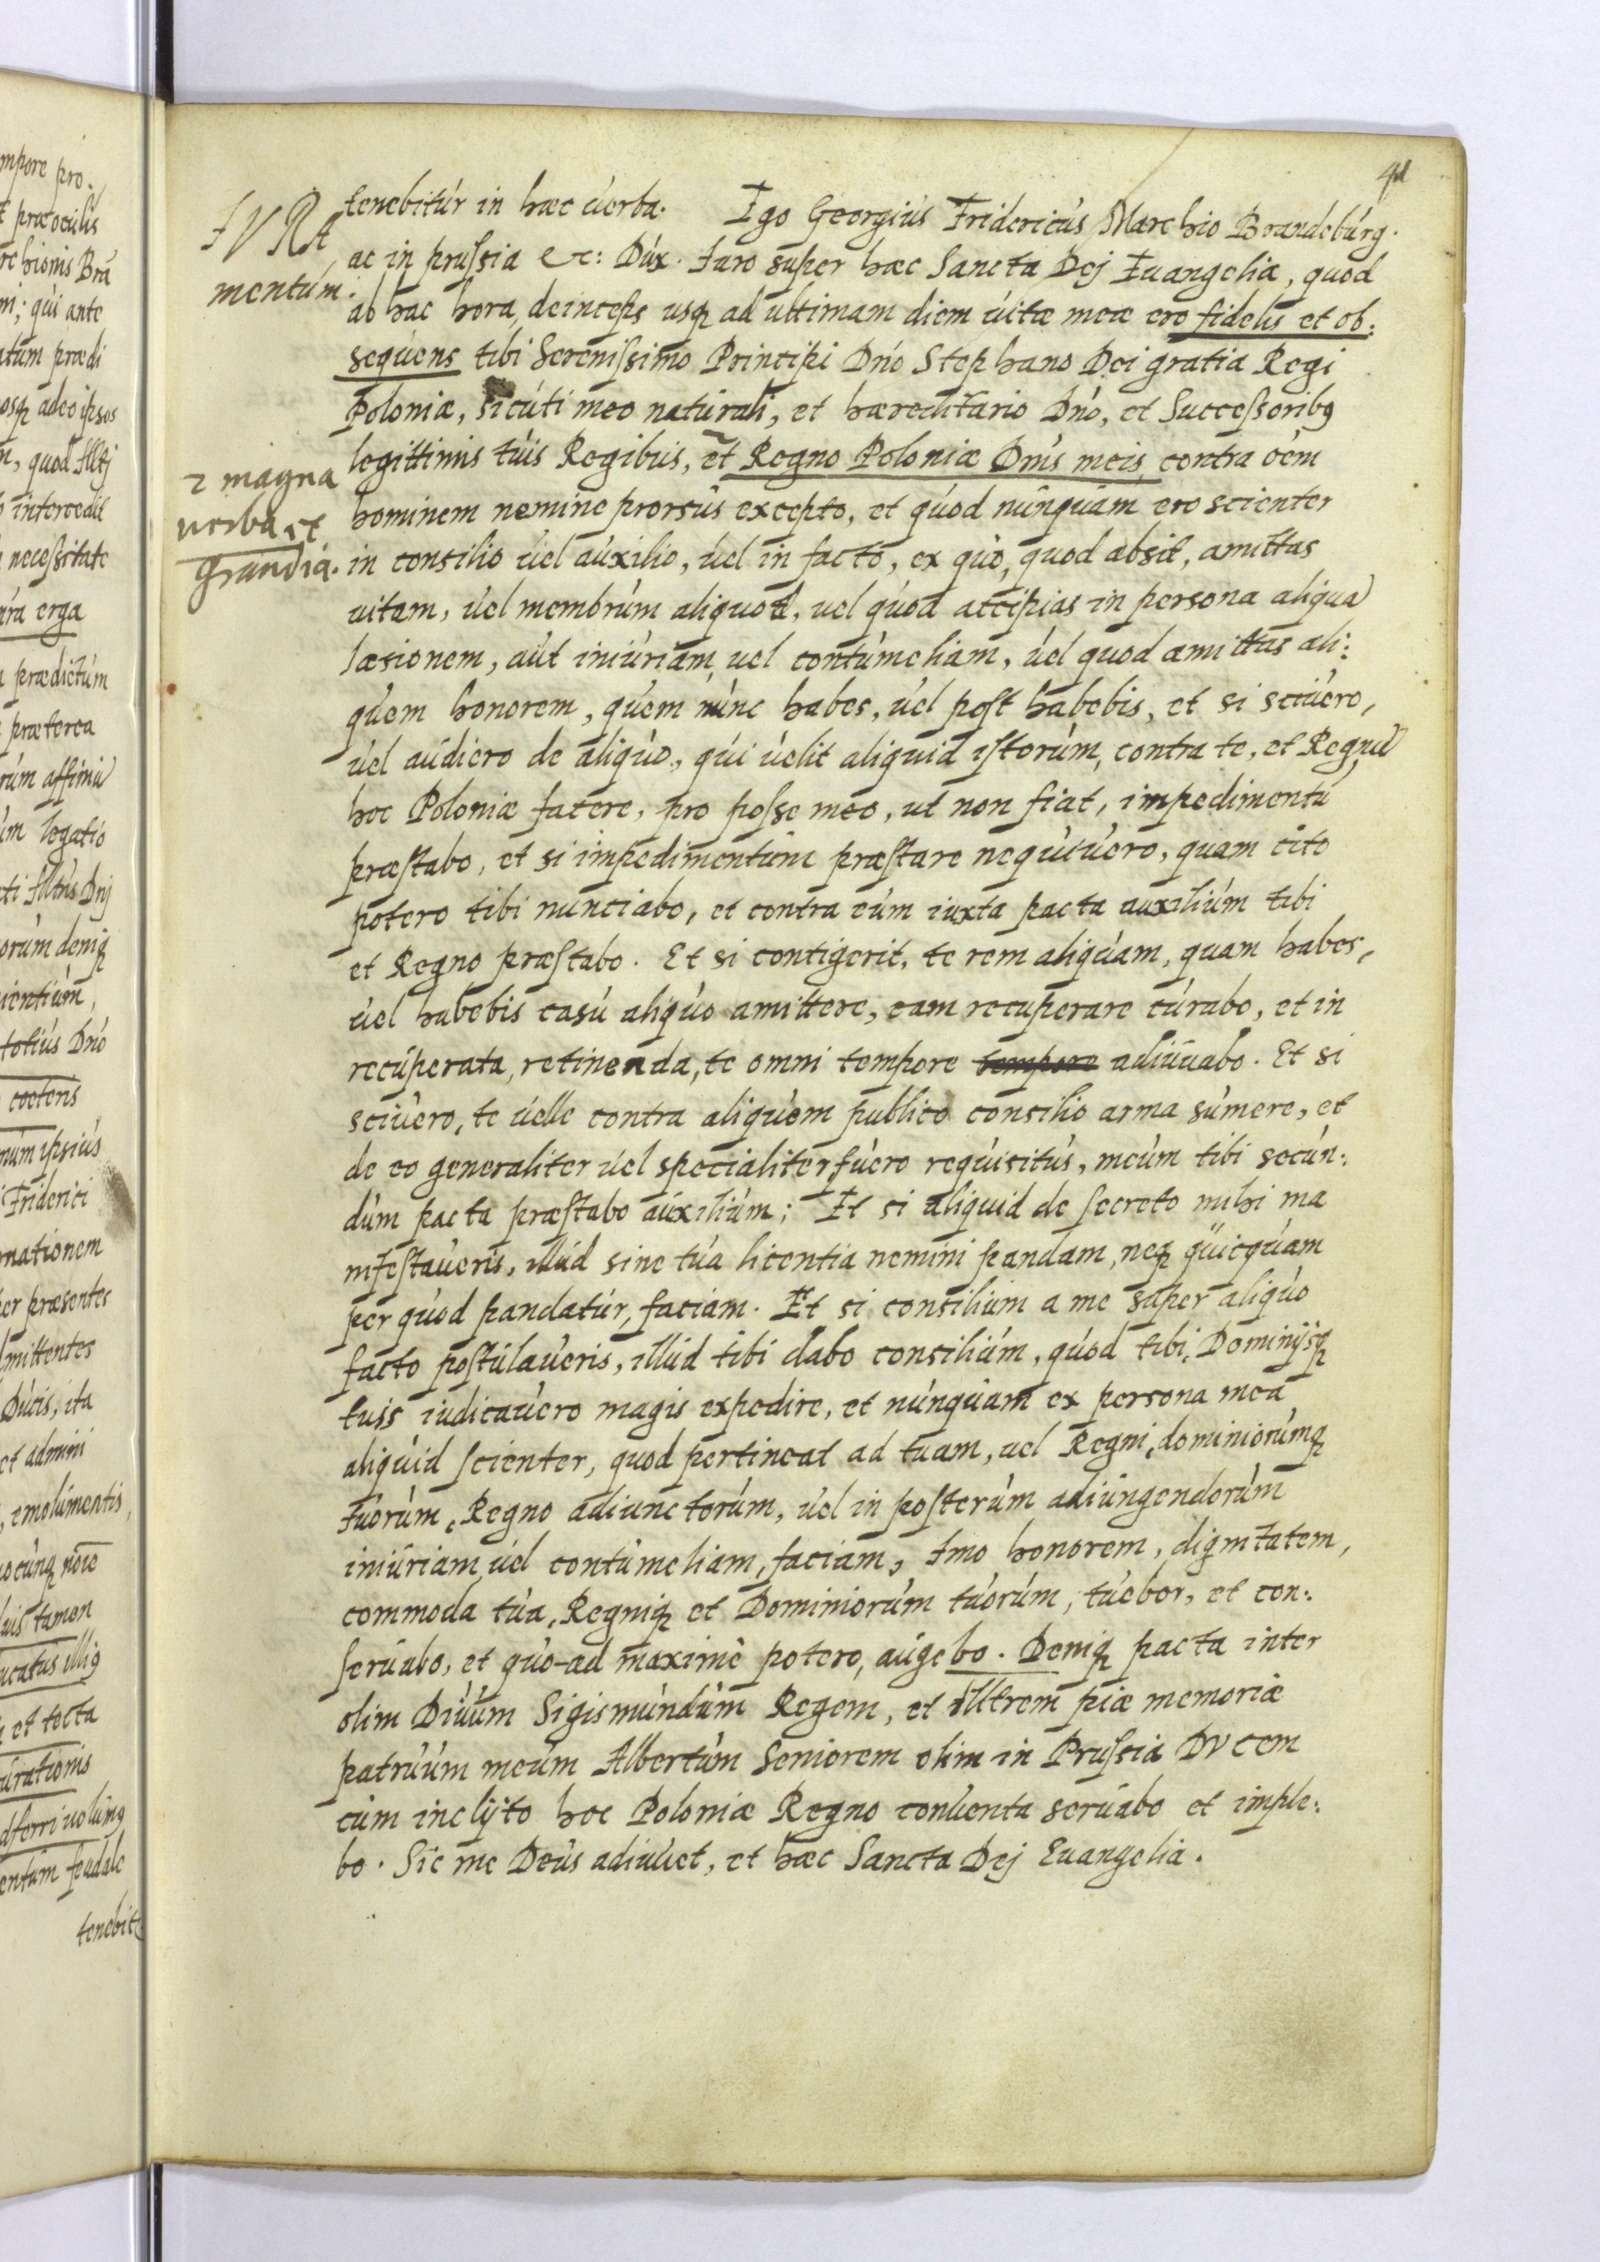 mpore pro.
præoculis
rchionis Brã
ni; qui ante
atum prædi
osq adeo ipsos
n, quod Illtj
intercedit
necessitate
ura erga
prædictum
præterea
rum affiniũ
um legatio
ti Illtris Dnj
orum deniq
ientium,
totius Dno
coeteris
num ipsius
Friderici
nationem
er præsentes
mittentes
Ducis, ita
et admini
, emolumentis,
ocunq noie
uis tamen
ucatus illiq
et tecta
urationis
entum feudale
tenebit
41
IVRA
mentum.
2 magna
uerba et
grandia.
tenebitur in hæc uerba. Ego Georgius Fridericus Marchio Brandeburg.
ac in prussia &c: Dux. Iuro super hæc Sancta Dej Euangelia, quod
ab hac hora, deinceps usq ad ultimam diem uitæ meæ ero fidelis et ob:
sequens tibi Serenissimo Principi Dno Stephano Dei gratia Regi
Poloniæ, sicuti meo naturali, et hæreditario Dno, et Successoribq
legittimis tuis Regibus, et Regno Poloniæ Dnis meis contra oem
hominem nemine prorsus excepto, et quod nunquam ero scienter
in consilio uel auxilio, uel in facto, ex quo, quod absit, amittas
uitam, uel membrum aliquod, uel quod accipias in persona aliqua
læsionem, aut iniuriam uel contumeliam, uel quod amittas ali:
quem honorem, quem nunc habes, uel post habebis, et si sciuero,
uel audiero de aliquo, qui uelit aliquid istorum, contra te, et Regnũ
hoc Poloniæ facere, pro posse meo, ut non fiat, impedimentũ
præstabo, et si impedimentum præstare nequiuero, quam cito
potero tibi nunciabo, et contra eum iuxta pacta auxilium tibi
et Regno præstabo. Et si contigerit, te rem aliquam, quam habes,
uel habebis casu aliquo amittere, eam recuperare curabo, et in
recuperata, retinenda, te omni tempore tempore adiuuabo. Et si
sciuero, te uelle contra aliquem publico consilio arma sumere, et
de eo generaliter uel specialiter fuero requisitus, meum tibi secun:
dum pacta præstabo auxilium; Et si aliquid de secreto mihi ma
nifestaueris, illud sine tua licentia nemini pandam, neq quicquam
per quod pandatur, faciam. Et si consilium a me super aliquo
facto postulaueris, illud tibi dabo consilium, quod tibi, Dominijsq
tuis iudicauero magis expedire, et nunquam ex persona mea
aliquid scienter, quod pertineat ad tuam, uel Regni, dominiorumq
tuorum, Regno adiunctorum, uel in posterum adiungendorum
iniuriam uel contumeliam, faciam, Imo honorem, dignitatem,
commoda tua, Regniq et Dominiorum tuorum, tuebor, et con:
seruabo, et quo-ad maximè potero, augebo. Deniq pacta inter
olim Diuum Sigismundum Regem, et Illtrem piæ memoriæ
patruum meum Albertum Seniorem olim in Prussia DVcem
cum inclyto hoc Poloniæ Regno conuenta seruabo et imple:
bo. Sic me Deus adiuuet, et hæc Sancta Dej Euangelia.